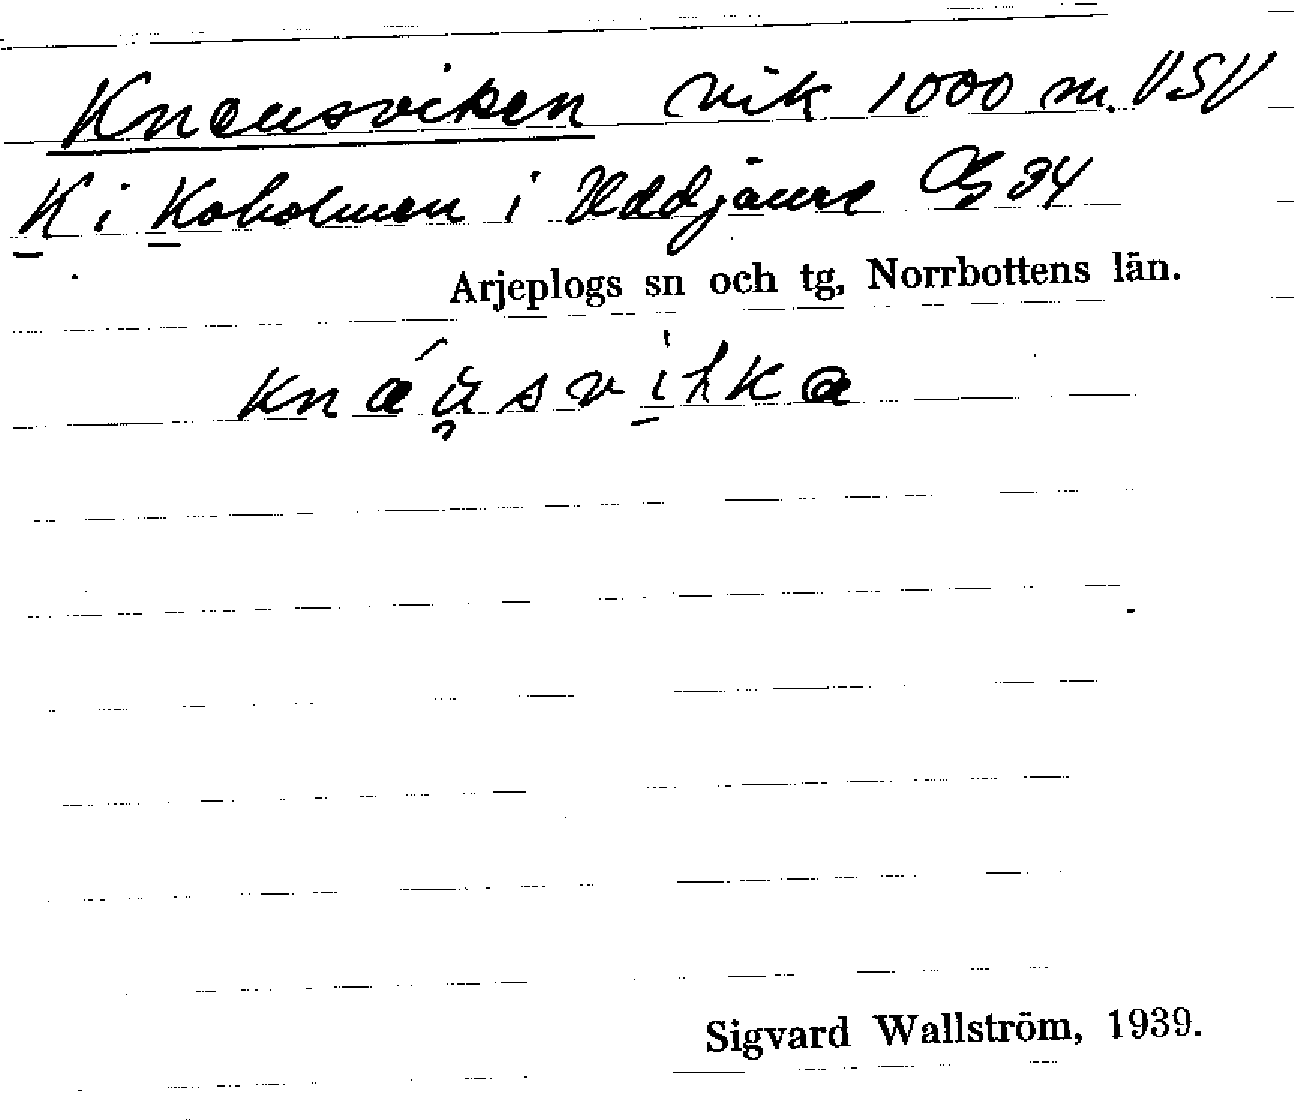 Knæusviken vik 1000 m. VSV
K i Koholmen i Uddjaure Cg 34
Arjeplogs sn och tg, Norrbottens län.
knæ´u̯svi̱hka
Sigvard Wallström, 1939.